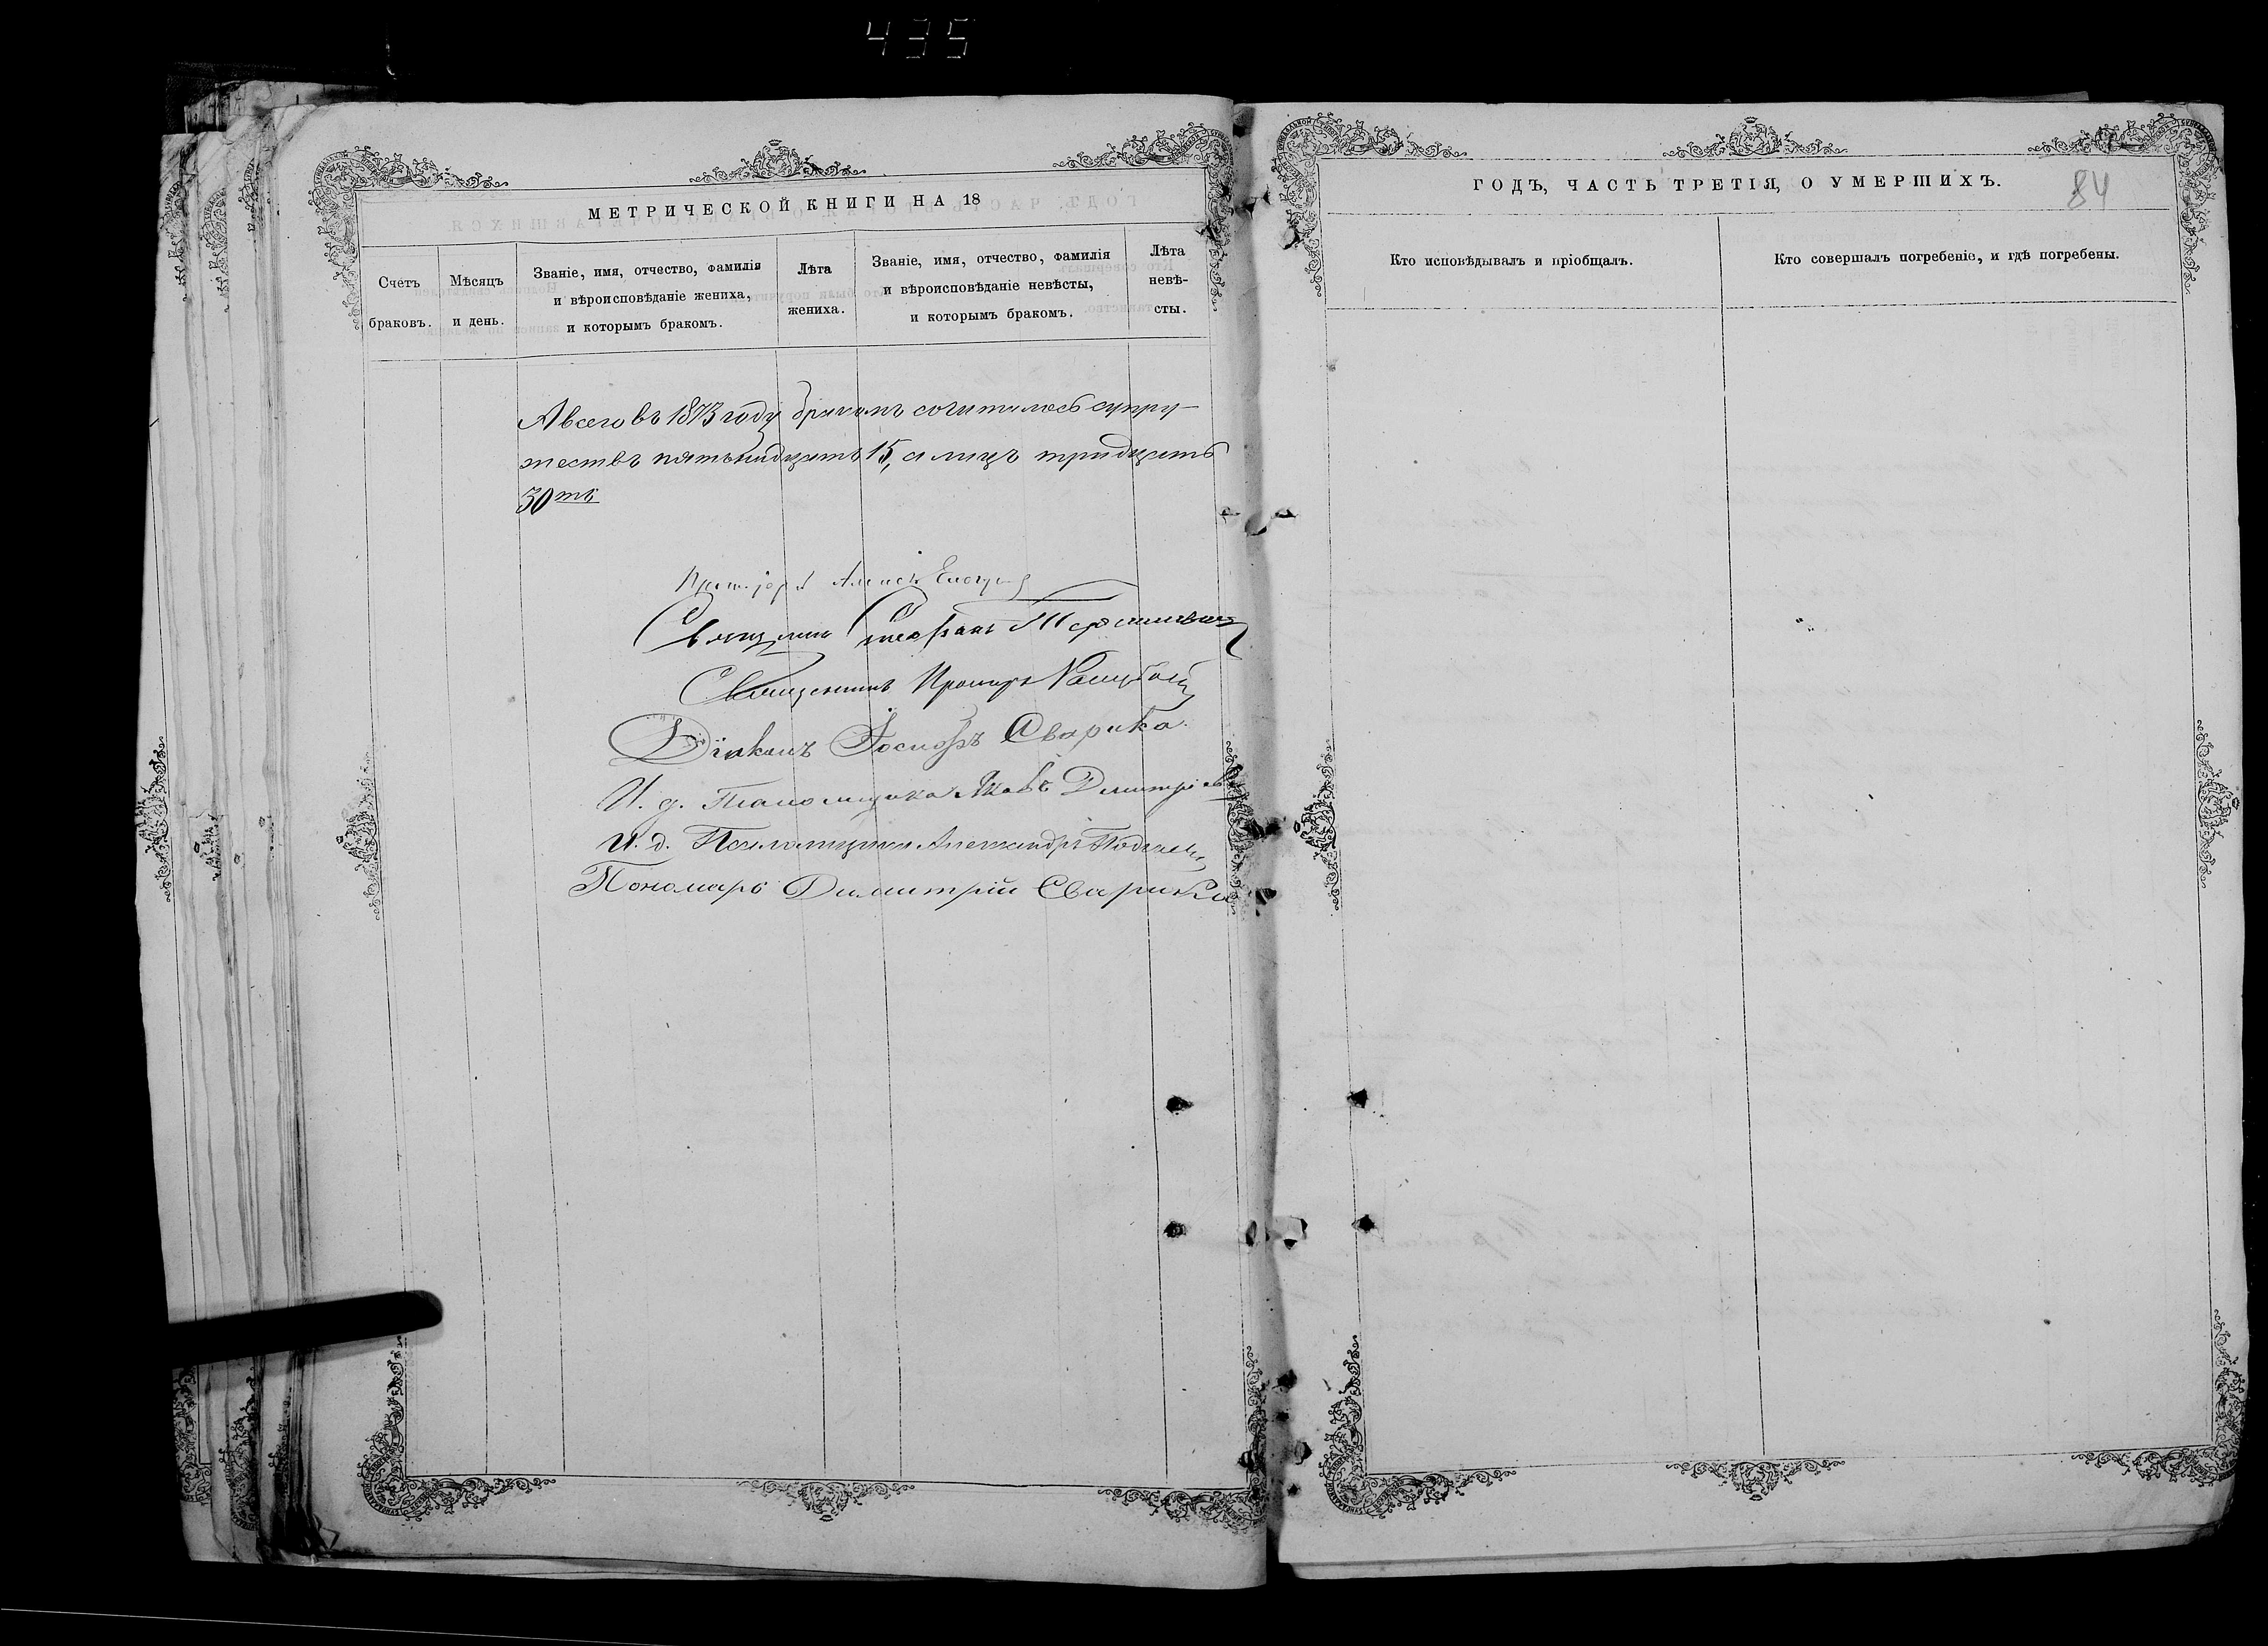 435
МЕТРИЧЕСКОЙ КНИГИ НА 18
Счетъ браковъ.
Мѣсяцъ и день.
Званіе, имя, отчество, фамилія
и вѣроисповѣданіе жениха,
и которымъ бракомъ.
Лѣта жениха.
Званіе, имя, отчество, фамилія
и вѣроисповѣданіе невѣсты,
и которымъ бракомъ.
Лѣта невѣ-
сты.
А всего въ 1873 году бракомъ сочиталось супру-
жествъ пятьнадцать 15, а лицъ тридцать
30ть
Священникъ Стефанъ
Священникъ
Діаконъ Іосифъ Сварика
И. д. Псаломщика Яковъ Димитріевъ
И. д. Псаломщика Александръ
Пономарь Димитрій Сварика
ГОДЪ, ЧАСТЬ ТРЕТІЯ, О УМЕРШИХЪ.
84
Кто исповѣдывалъ и пріобщалъ.
Кто совершалъ погребеніе, и гдѣ погребены.